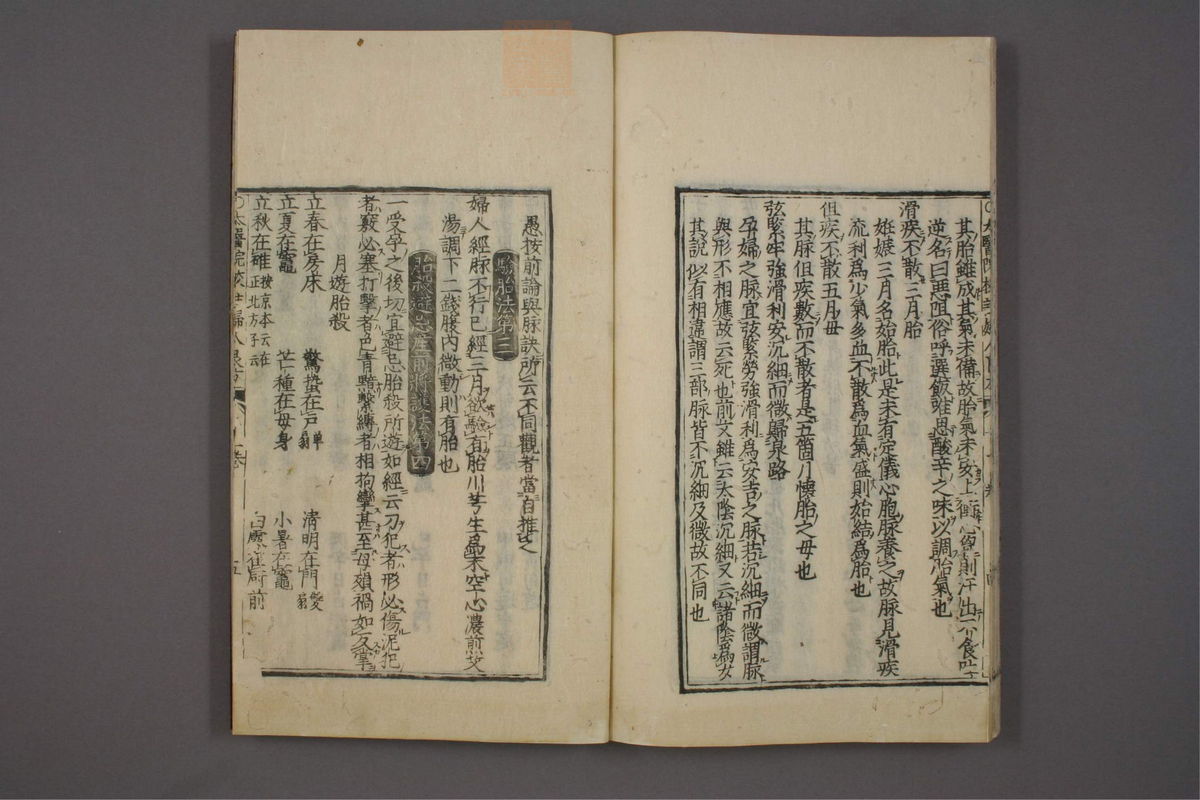 其胎雖成其氣未備故胎氣未安上衝心胷則汗出不食吐
逆名曰惡阻俗呼選飯唯思酸辛之味以調胎氣也
滑疾不散三月胎
姙娠三月名始胎此是未有定儀心胞脉養之故脉見滑疾
流利爲少氣多血不散爲血氣盛則始結爲胎也
但疾不散五月母
其脉但疾數而不散者是五箇月懷胎之母也
弦緊牢強滑利安沉細而微歸泉路
孕婦之脉宜弦緊勞強滑利爲安吉之脉若沉細而微謂脉
與形不相應故云死也前文雖云太陰沉細又云諸陰爲女
其說似有相違謂三部脉皆不沉細及微故不同也
愚按前論與脉訣所云不同觀者當自推之
驗胎法第三
婦人經脉不行已經三月欲驗有胎川芎生爲末空心濃煎艾
湯調下二錢腹内微動則有胎也
胎殺避忌産前將護法第四
一受孕之後切宜避忌胎殺所遊如經云刀犯者形必傷泥犯
者竅必塞打擊者色青黯繫縛者相拘攣甚至母殞禍如反掌
月遊胎殺
立春在房床 驚蟄在戶單扇 清明在門雙扇
立夏在竈 芒種在母身 小暑在竈
立秋在碓按京本云在正北方子云 白露在厨前